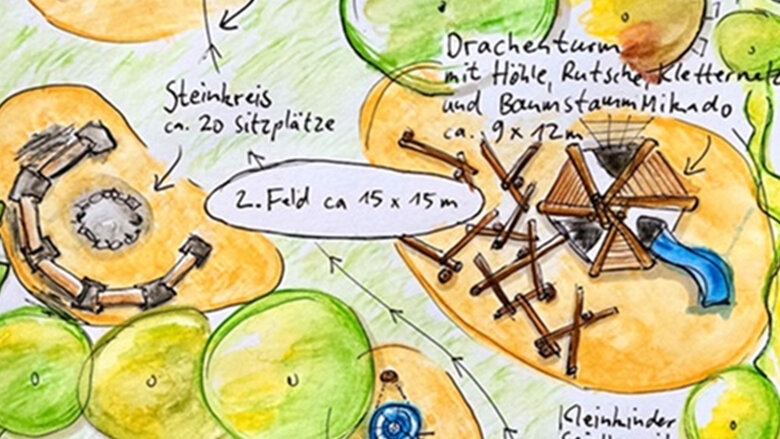 Drachenturm
mit Höhle, Rutsche, Kletternetz
und BaumstammMikado
ca. 9 x 12 m
Steinkreis
ca. 20 Sitzplätze
2. Feld ca 15 x 15 m
Kleinkinder